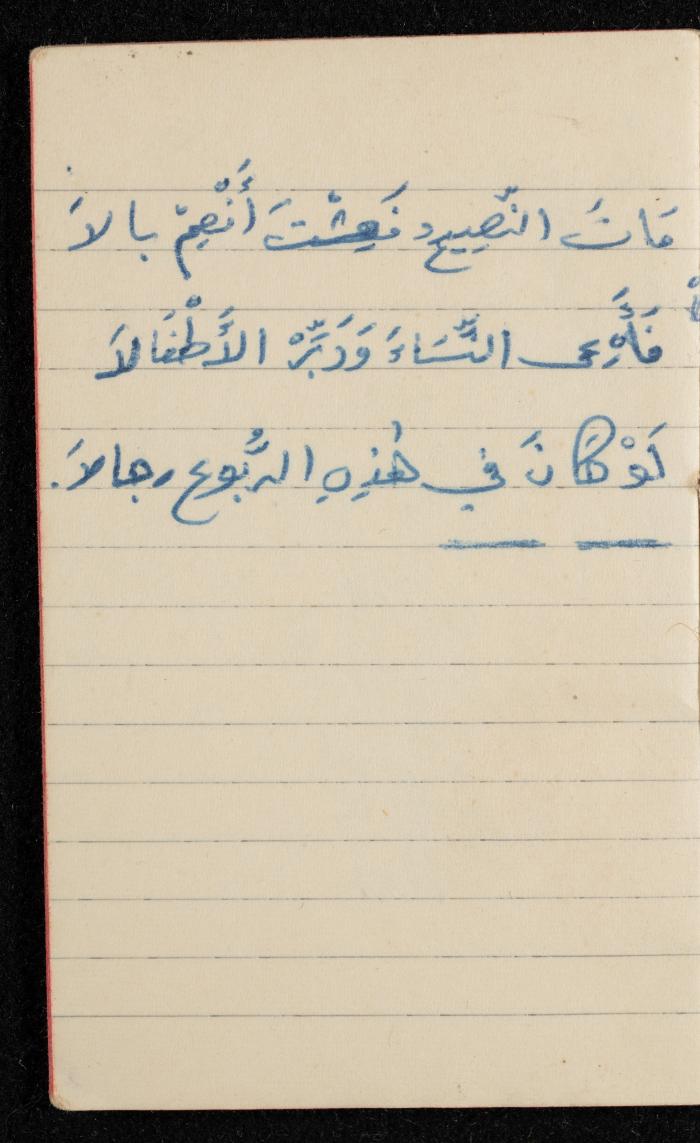 مَاتَ النَّصِيحُ فَعِشْتَ أَنْعِمْ بالاَ
النِّسَاءَ وَدَبِّرْ الأَطْفَالاَ
لَوْ كَانَ في هٰذِهِ الرُّبُوعِ رجالاَ.